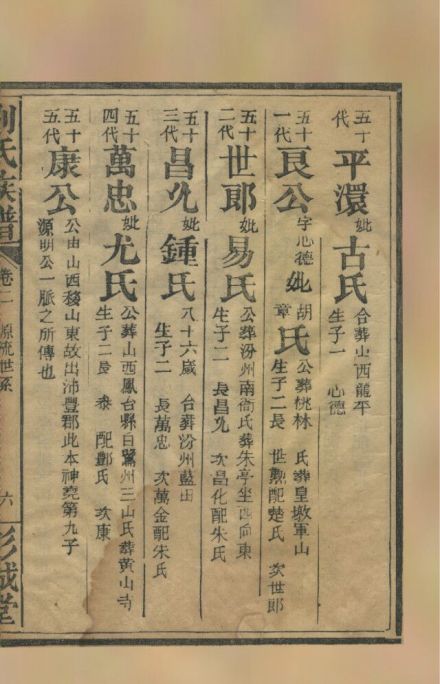 五十代 平澴 妣古氏 合葬山西龍平 生子一 心德
五十一代 良公 字心德 妣胡章氏 公葬桃林 氏葬皇墩軍山 生子二 長世勲配楚氏 次世郎
五十二代 世郎 妣易氏 公葬汾州南衙氏葬朱亭坐酉向東 生子二 長昌允 次昌化配朱氏
五十三代 昌允 妣鍾氏 八十六歲 合葬汾州藍田 生子二 長萬忠 次萬金配朱氏
五十四代 萬忠 妣尤氏 公葬山西鳳台縣白鷺州三山氏葬黄山寺 生子二 長泰 配酆氏 次康
五十五代 康公 公由山西移山東故出沛豐郡此本神堯第九子
源明公一脈之所傳也
劉氏族譜 卷二 源流世系 六 彭城堂